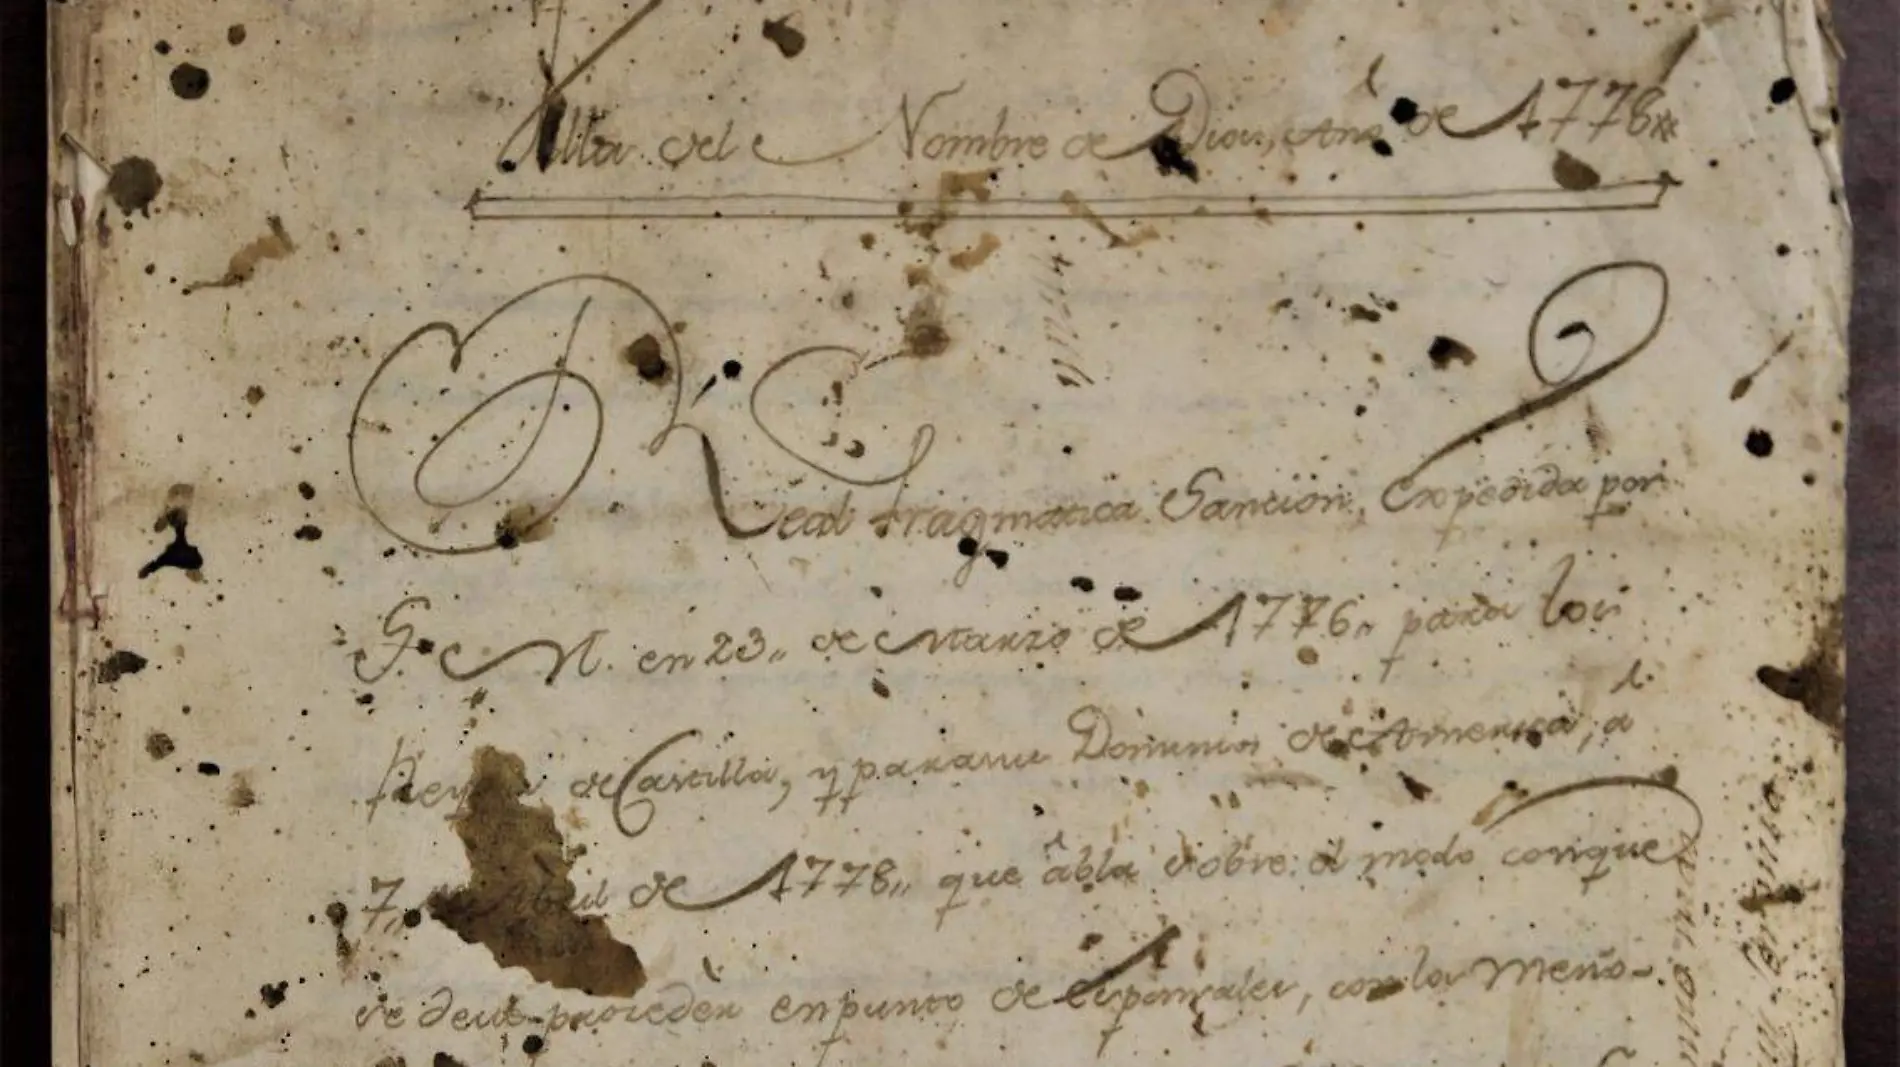 Villa del Nombre de Dios, Año de 1778
Real Pragmatica Sancion, Expedida por
S. M. en 23,, de Marzo de 1776,, para los
Reynos de Castilla, y parasus Dominios de America, á
7,, de Abril de 1778,, que âbla sobre el modo conque
se deve proceder enpunto de Esponsales, con los Meno-